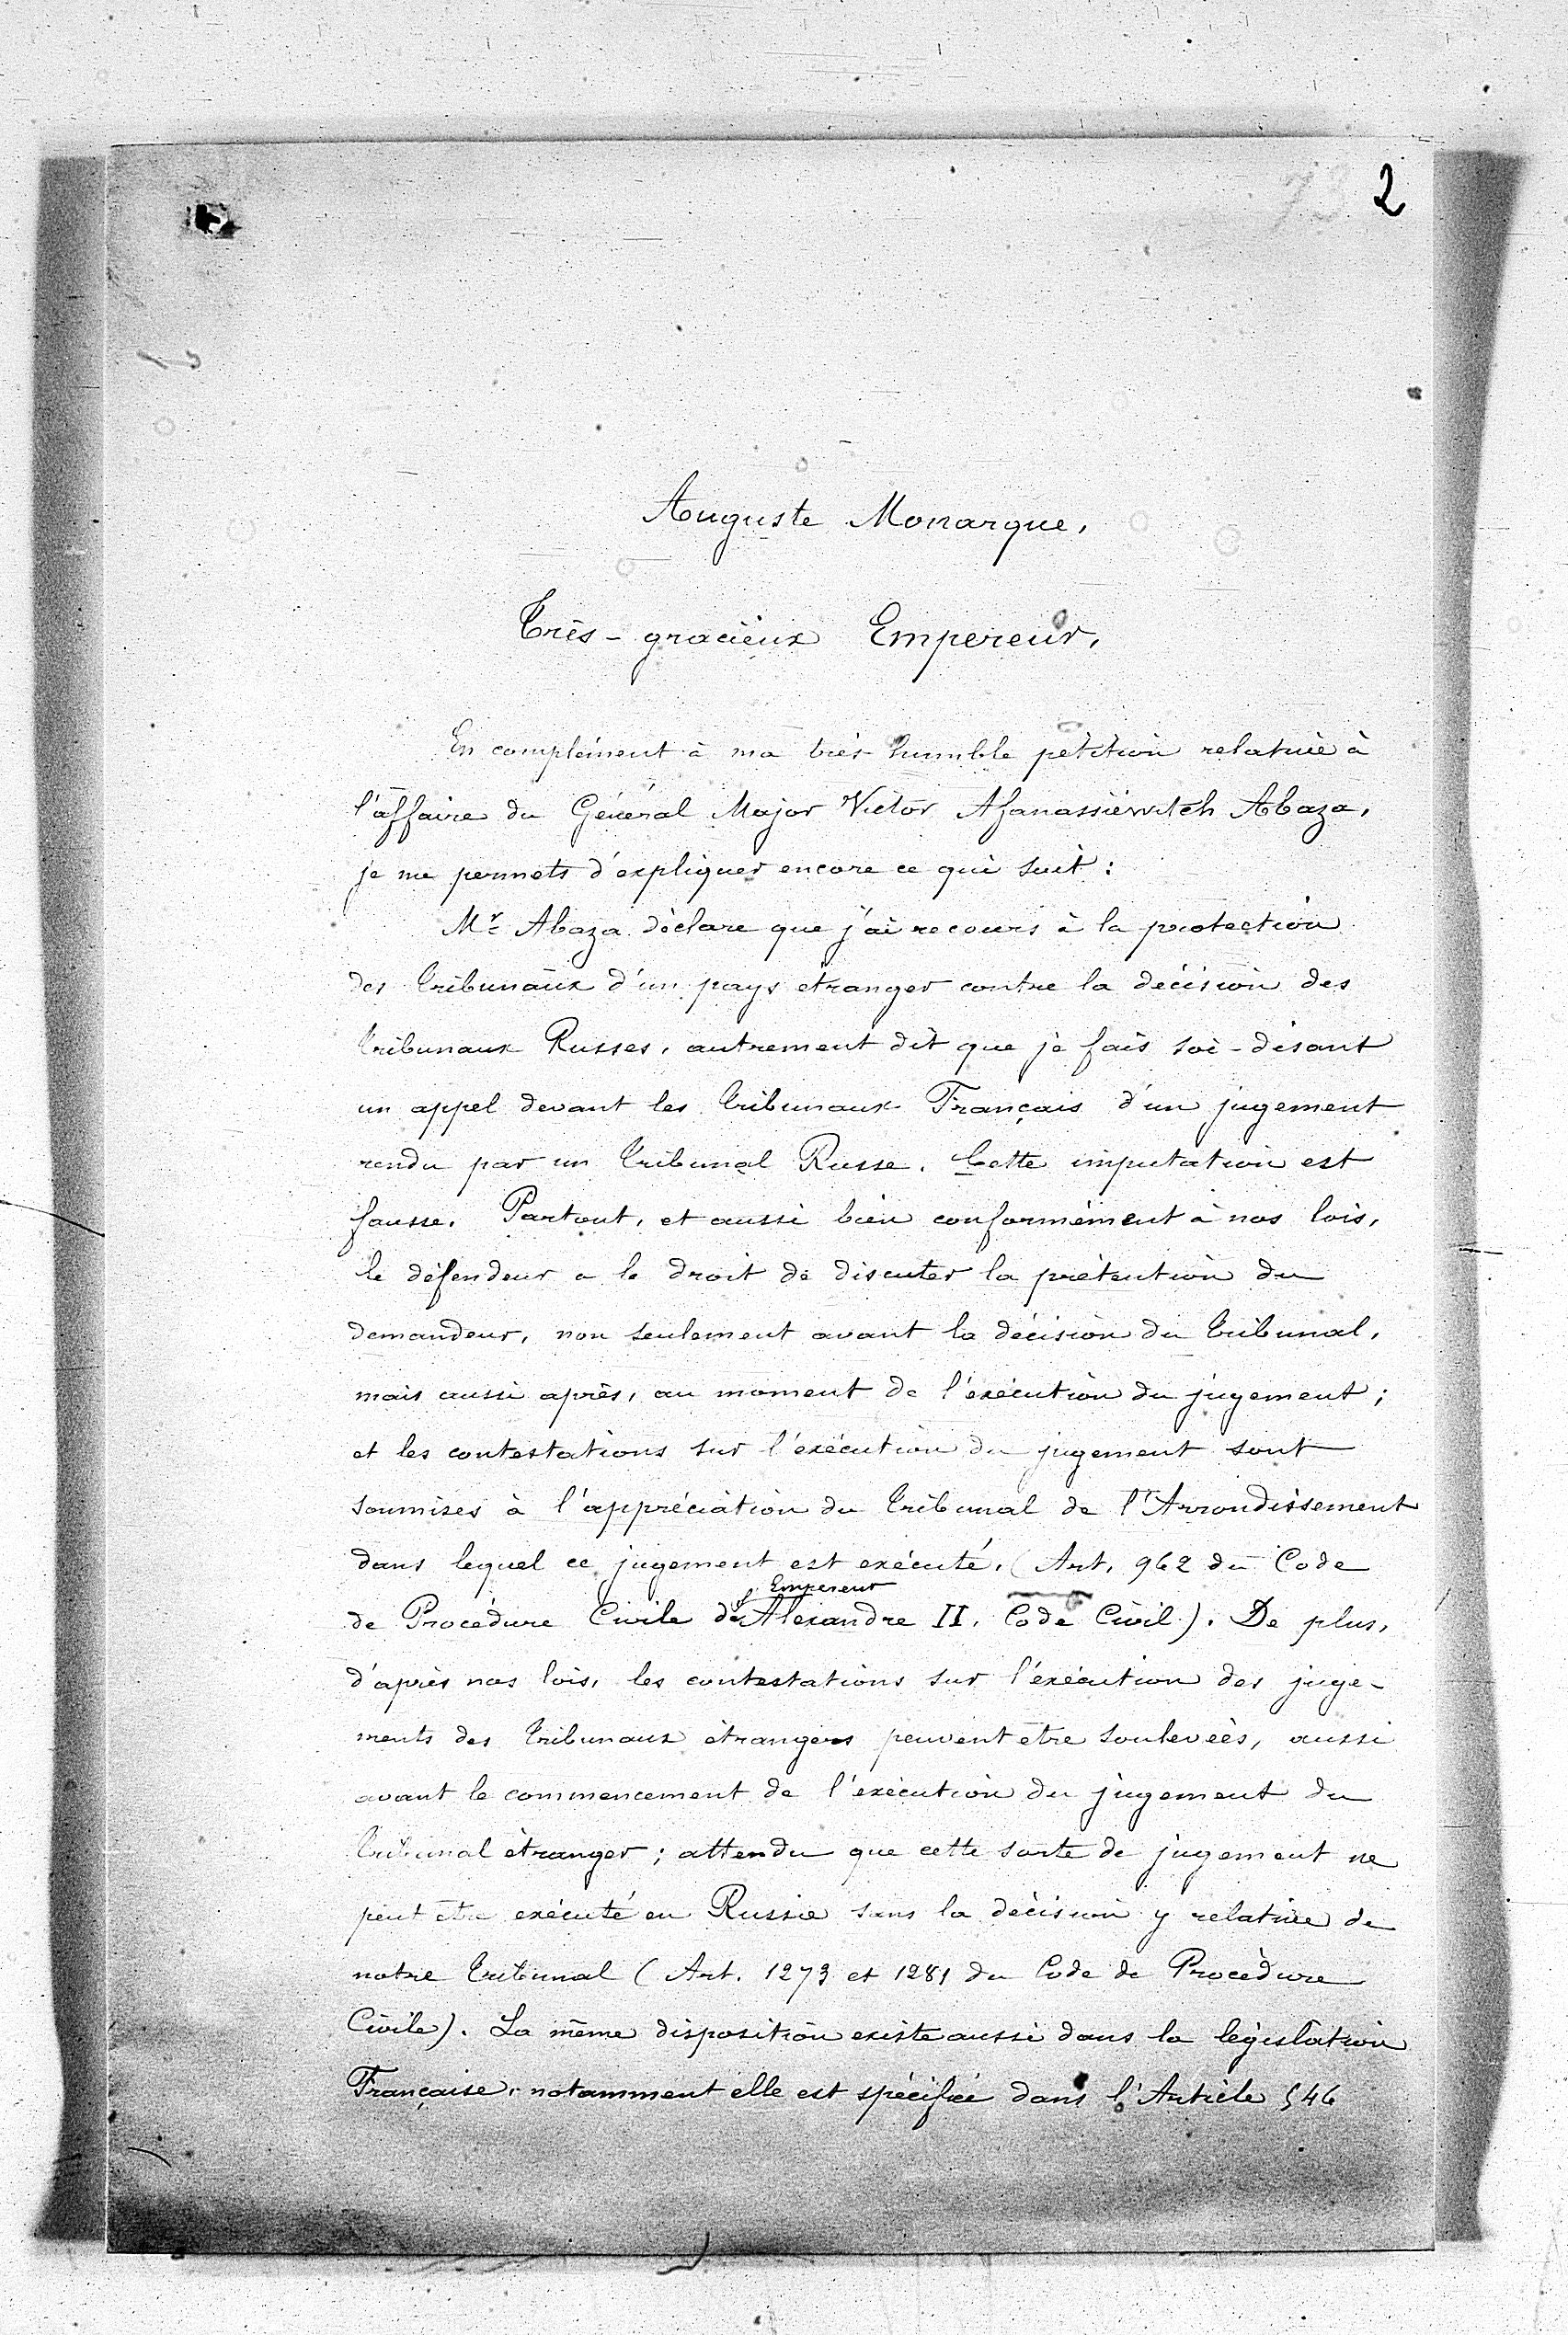 73 2
Auguste Monarque,
Très-gracieux Empereur,
En complément à ma très humble pétition relative à
l'affaire du Général Major Victor Afanassiéwitch Abaza,
je me permets d'expliquer encore ce qui suit :
Mr Abaza déclare que j'ai recours à la protection
des Tribunaux d'un pays étranger contre la décision des
Tribunaux Russes, autrement dit que je fais soi-disant
un appel devant les Tribunaux Français d'un jugement
rendu par un Tribunal Russe. Cette imputation est
fausse. Partout, et aussi bien conformément à nos lois,
le défendeur a le droit de discuter la prétention du
demandeur, non seulement avant la décision du Tribunal,
mais aussi après, au moment de l'exécution du jugement ;
et les contestations sur l'exécution du jugement sont
soumises à l'appréciation du Tribunal de l'Arrondissement
dans lequel ce jugement est exécuté. (Art. 962 du Code
l'Empereur
de Procédure Civile de Alexandre II. Code Civil). De plus,
d'après nos lois, les contestations sur l'exécution des juge-
ments des Tribunaux étrangers peuvent être soulevées, aussi
avant le commencement de l'exécution du jugement du
Tribunal étranger ; attendu que cette sorte de jugement ne
peut être exécuté en Russie sans la décision y relative de
notre Tribunal (Art. 1273 et 1281 du Code de Procédure
Civile). La même disposition existe aussi dans la législation
Française, notamment elle est spécifiée dans l'Article 546